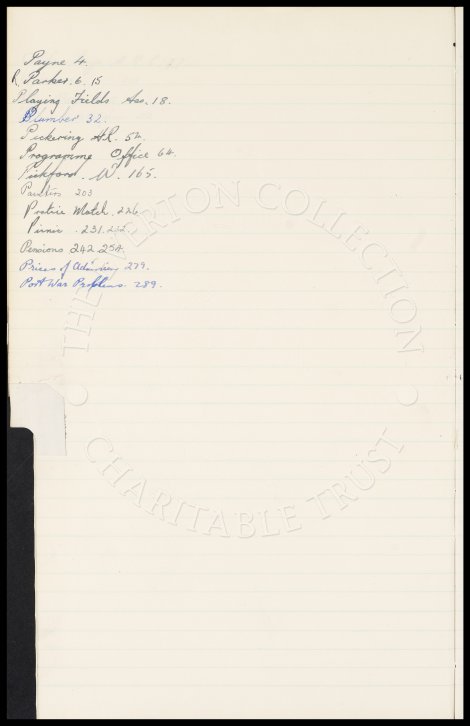 Payne 4.
R. Parker. 6. 15
Playing Fields Ass. 18.
Plumber 32.
Pickering H.R. 52.
Programme Office 64.
Pickford. W. 165.
Painters 203
Pratice Match. 226
Picnic. 231. 232.
Pensions 242. 254.
Prices of Admission 279.
Post War Problems. 289.
THE EVERTON COLLECTION
CHARITABLE TRUST